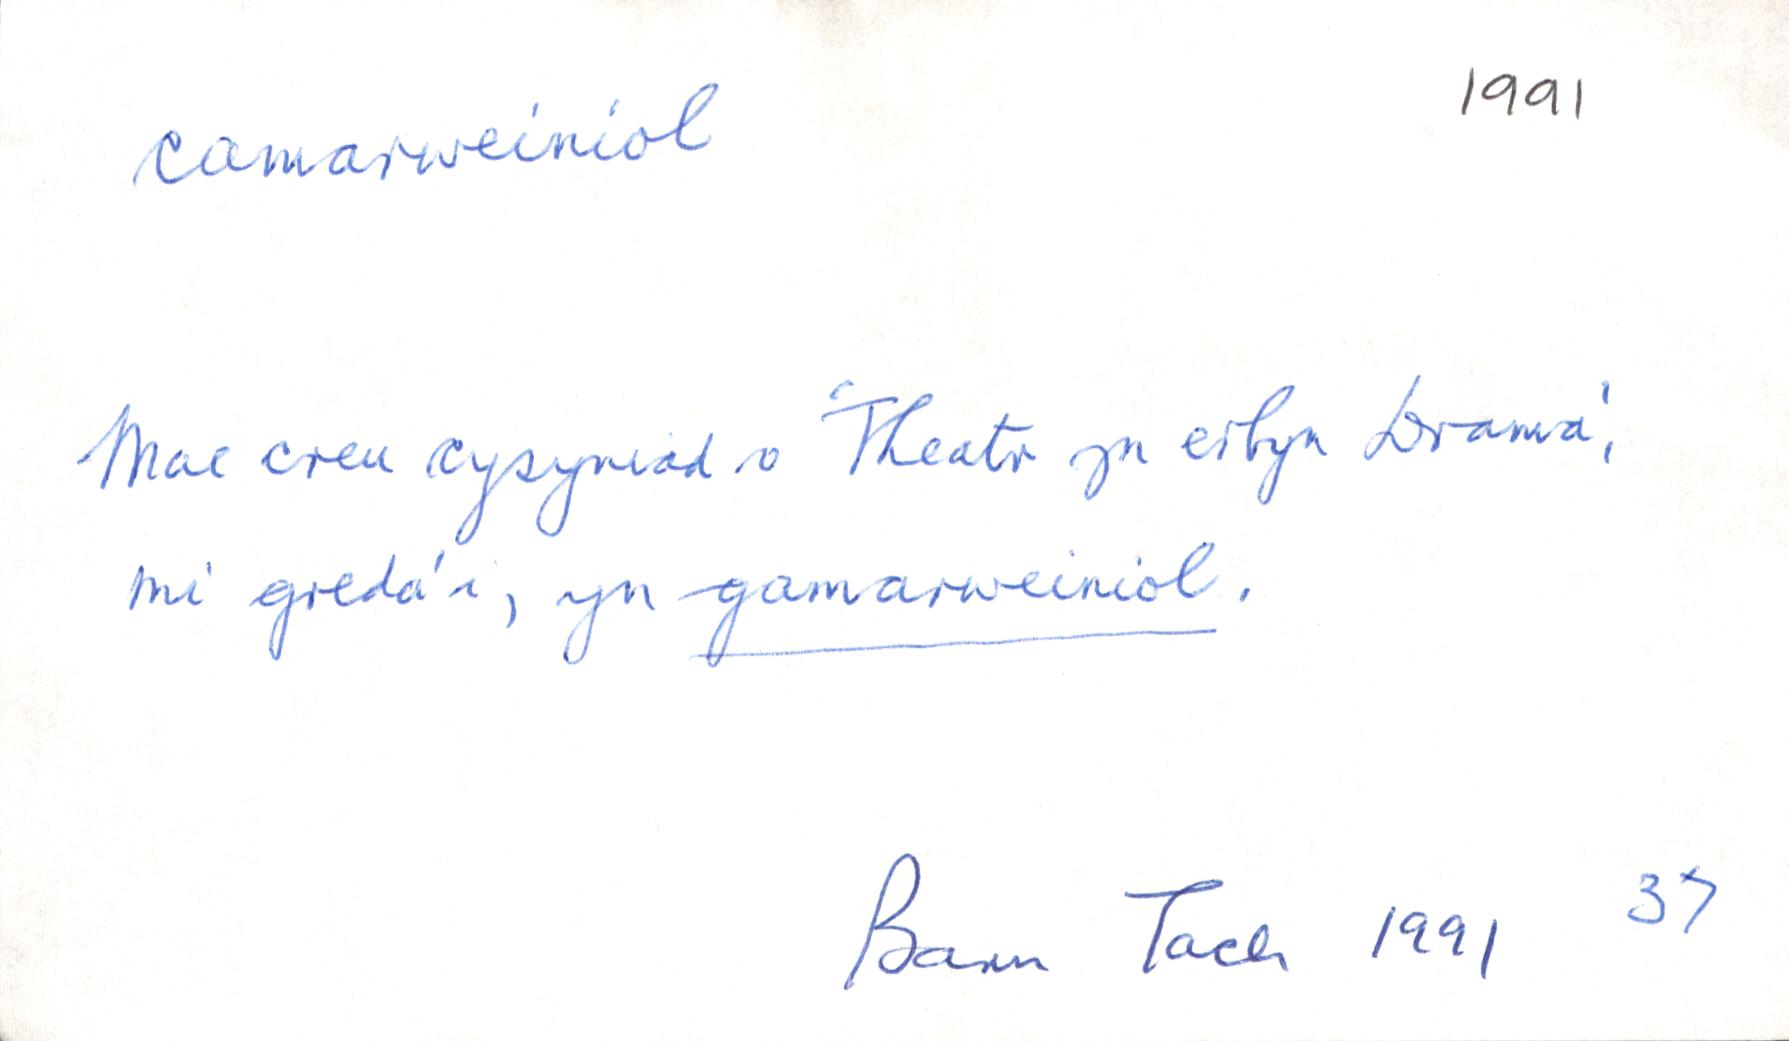 camarweiniol 1991
Mae creu cysyniad o 'Theatr yn erbyn Drama',
mi greda' i, yn gamarweiniol.
Barn Tach 1991 37